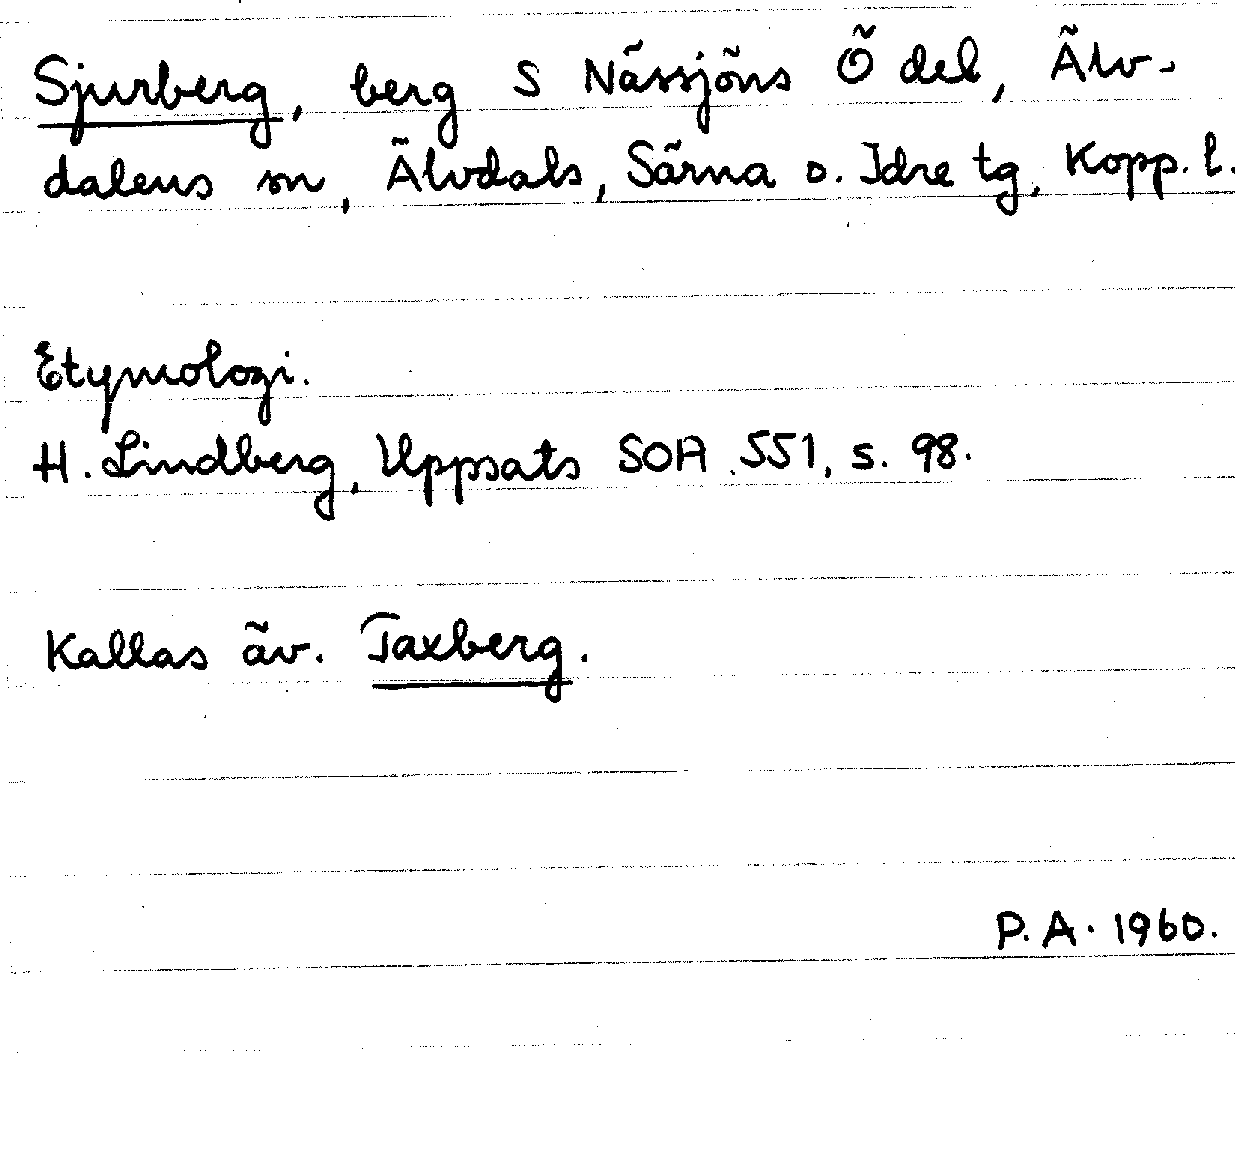 Sjurberg, berg S Nässjöns Ö del, Älv-
dalens sn, Älvdals, Särna o. Idre tg, Kopp. l.
Etymologi.
H. Lindberg, Uppsats SOA 551, s. 98.
Kallas äv. Taxberg.
P.A. 1960.